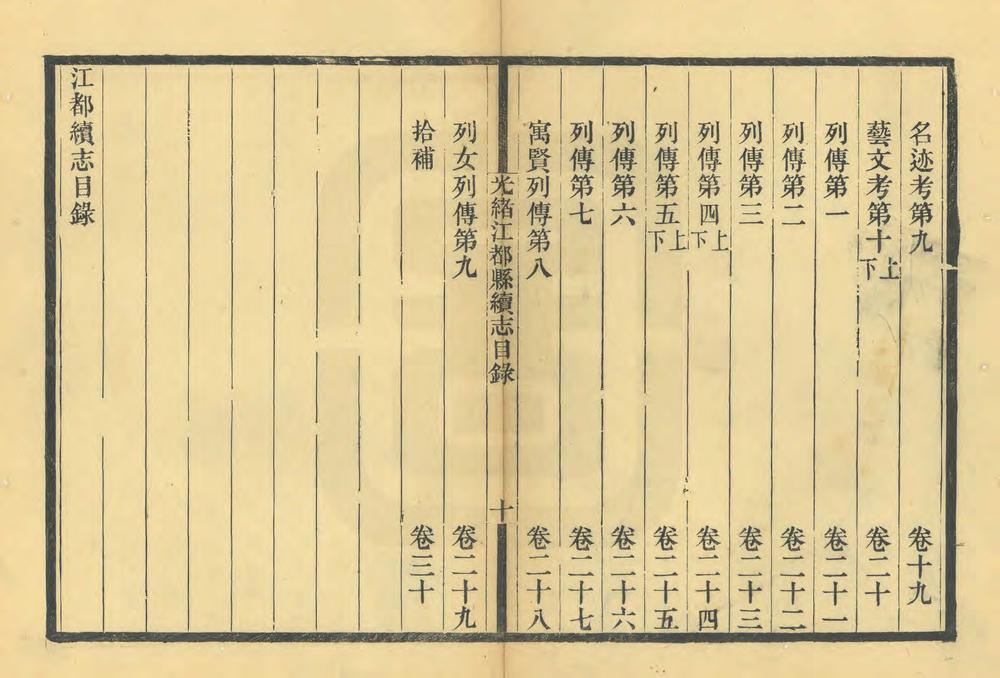 名迹考第九 卷十九
藝文考第十上下 卷二十
列傳第一 卷二十一
列傳第二 卷二十二
列傳第三 卷二十三
列傳第四上下 卷二十四
列傳第五上下 卷二十五
列傳第六 卷二十六
列傳第七 卷二十七
寓賢列傳第八 卷二十八
光緒江都縣續志目錄 十
列女列傳第九 卷二十九
拾補 卷三十
江都續志目錄